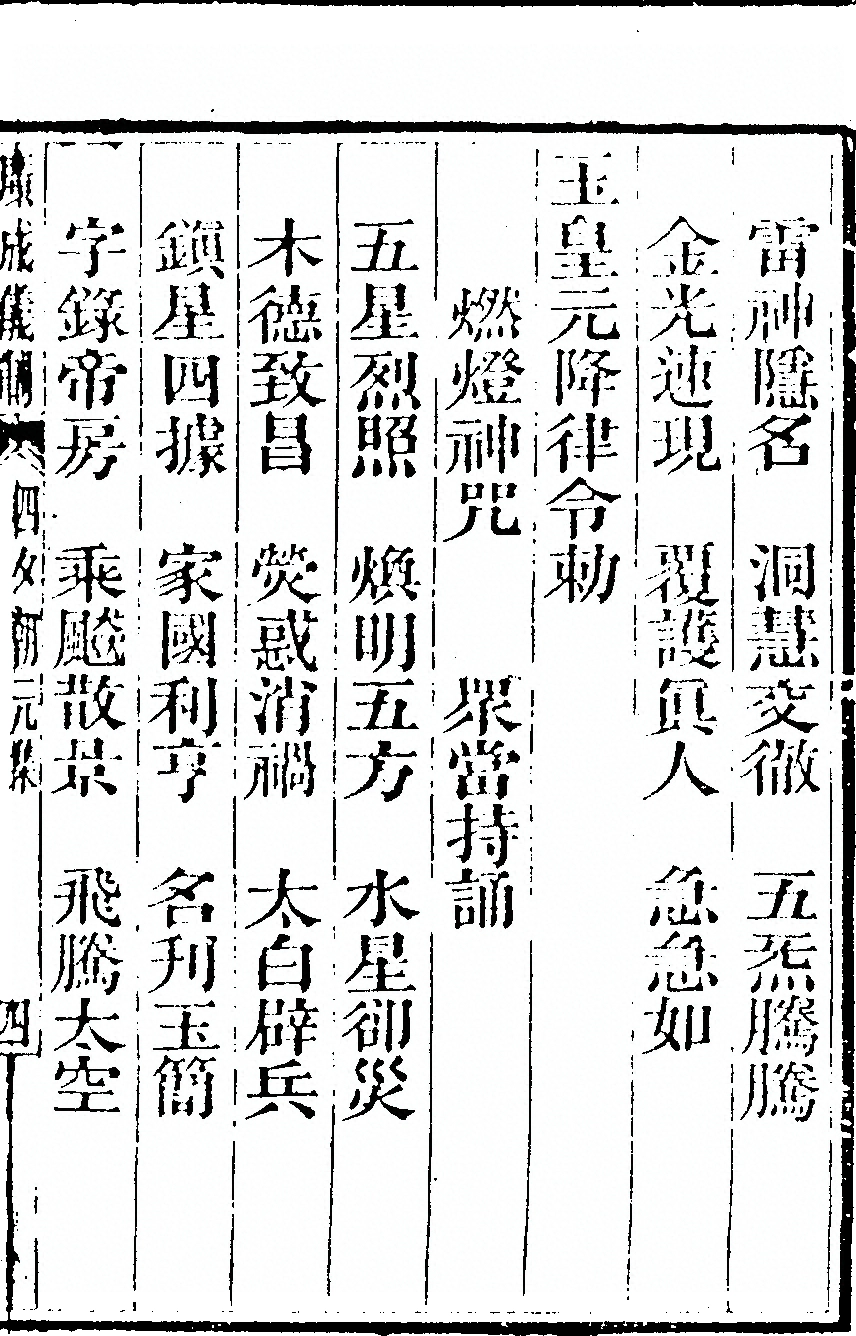 雷神隱名　洞慧交徹　五炁騰騰
金光速現　覆護眞人　急急如
玉皇元降律令勅
燃燈神咒　眾當持誦
五星烈照　煥明五方　水星卻災
木德致昌　熒惑消禍　太白辟兵
鎮星四據　家國利亨　名刋玉簡
字錄帝房　乘飈散景　飛騰太空
成儀制　朝元集　四